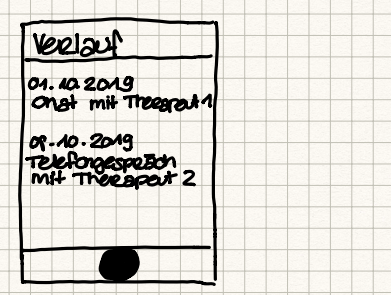 Verlauf
01.10.2019
Chat mit Therapeut 1
09.10.2019
Telefongespräch
mit Therapeut 2